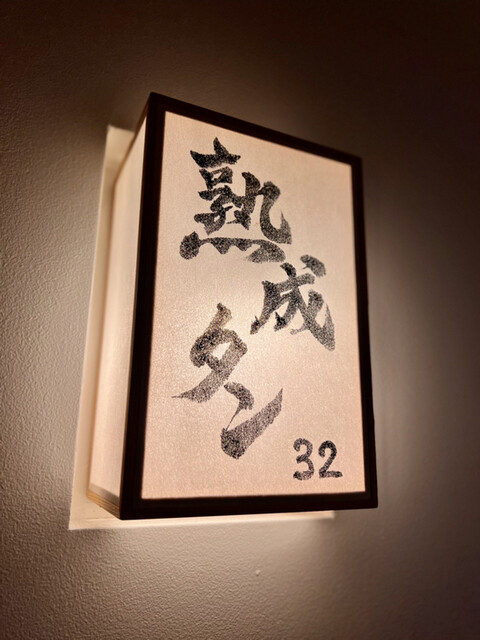 熟成
タン
32